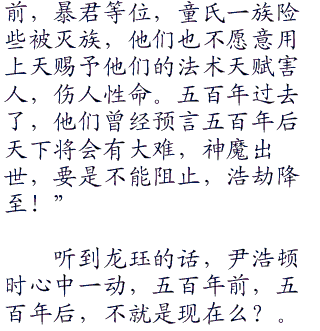 前，暴君等位，童氏一族险
些被灭族，他们也不愿意用
上天赐予他们的法术天赋害
人，伤人性命。五百年过去
了，他们曾经预言五百年后
天下将会有大难，神魔出
世，要是不能阻止，浩劫降
至！”
听到龙珏的话，尹浩顿
时心中一动，五百年前，五
百年后，不就是现在么？。